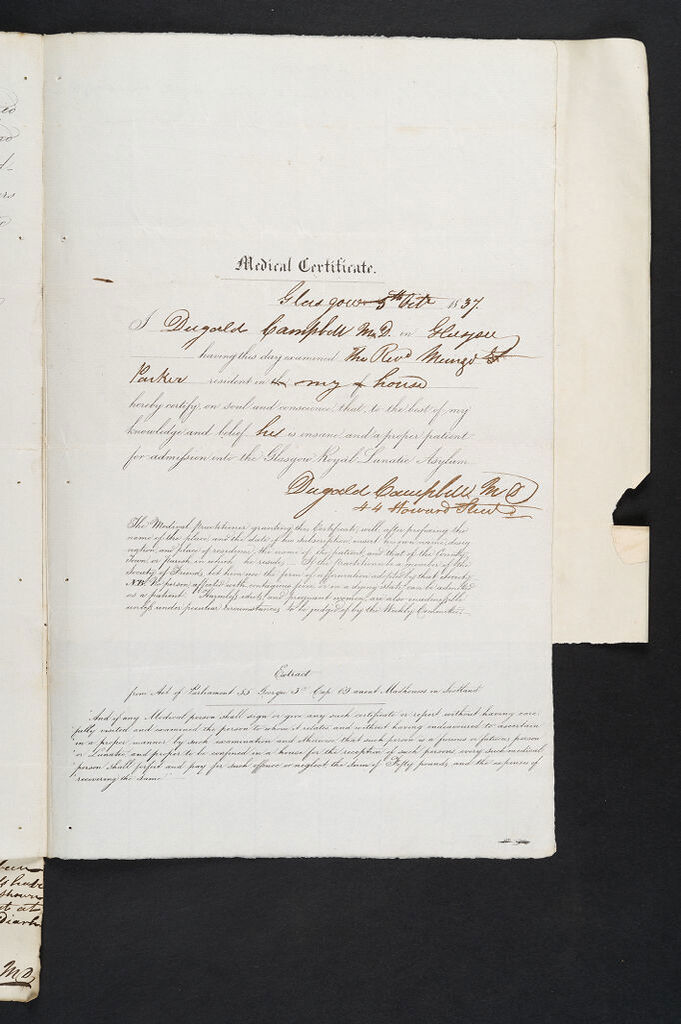 Medical Certificate.
Glasgow 5th Octr 1837.
I Dugald Campbell M.D. in Glasgow
having this day examined The Revd Mungo
Parker resident in my house
hereby certify, on soul and conscience, that, to the best of my
knowledge and belief he is insane and a proper patient
for admission into the Glasgow Royal Lunatic Asylum.
Dugald Campbell M.D
44 Howard Street
The Medical Practitioner granting this Certificate, will, after prefixing the
name of the place, and the date of his subscription, insert his own name, desig-
nation, and place of residence, the name of the patient, and that of the County,
Town or Parish in which he resides. If the practitioner be a member of the
Society of Friends, let him use the form of affirmation adopted by that Society.
NB. No person affected with contagious fever, or in a dying state, can be admitted
as a patient. Harmless idiots, and pregnant women, are also inadmissible,
unless under peculiar circumstances, to be judged of by the Weekly Committee.
Extract
from Act of Parliament 55 George 3d Cap. 69 anent Madhouses in Scotland
"And if any Medical person shall sign or give any such certificate or report without having care-
fully visited and examined the person to whom it relates and without having endeavoured to ascertain
in a proper manner by such examination and otherwise that such person is a furious or fatuous person
or Lunatic and proper to be confined in a house for the reception of such persons, every such medical
person shall forfeit and pay for such offence or neglect the sum of Fifty pounds, and the expenses of
recovering the same"
M.D.